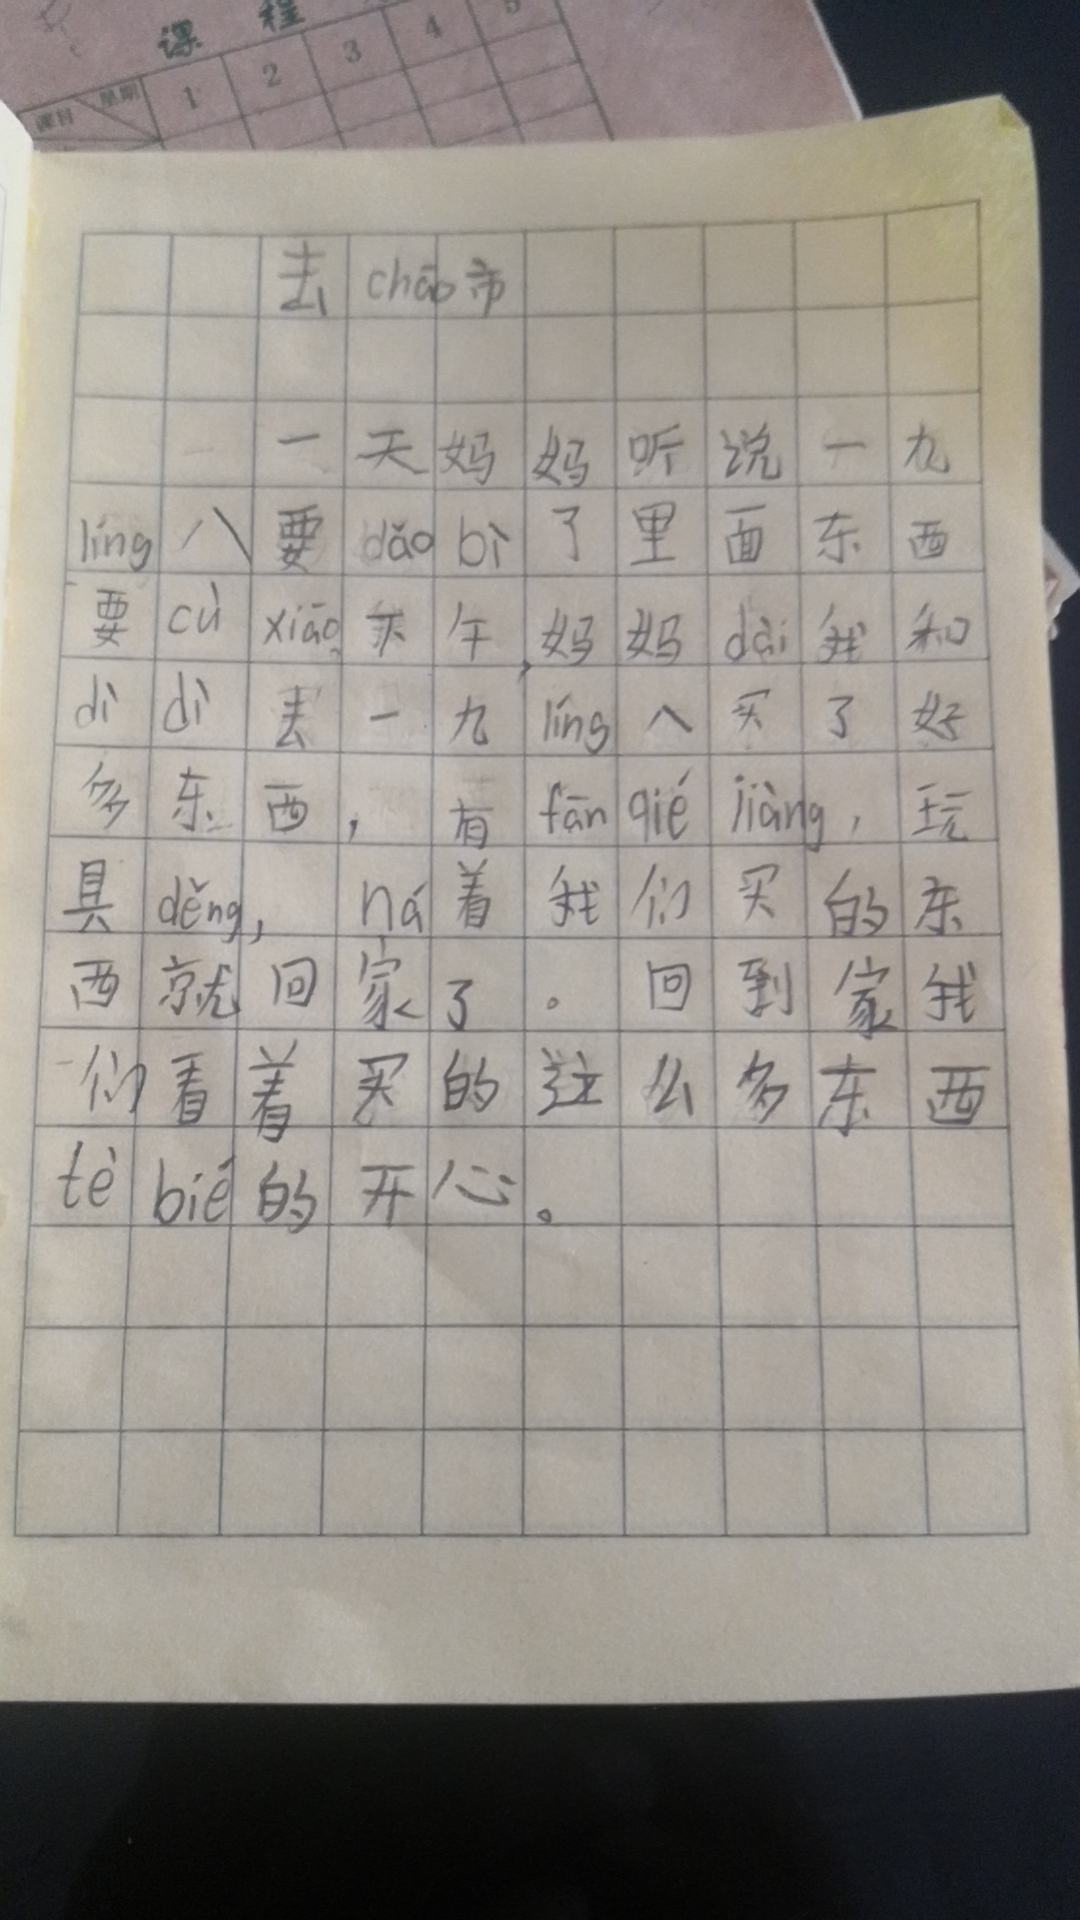 课 程
星期 1 2 3 4 5
课目
去 chāo 市
一 天 妈 妈 听 说 一 九
líng 八 要 dǎo bì 了 里 面 东 西
要 cù xiāo 下 午,妈 妈 dài 我 和
dì dì 去 一 九 líng 八 买 了 好
多 东 西 , 有 fān qié jiàng , 玩
具 děng, ná 着 我 们 买 的 东
西 就 回 家 了 。 回 到 家 我
们 看 着 买 的 这 么 多 东 西
tè bié 的 开 心 。